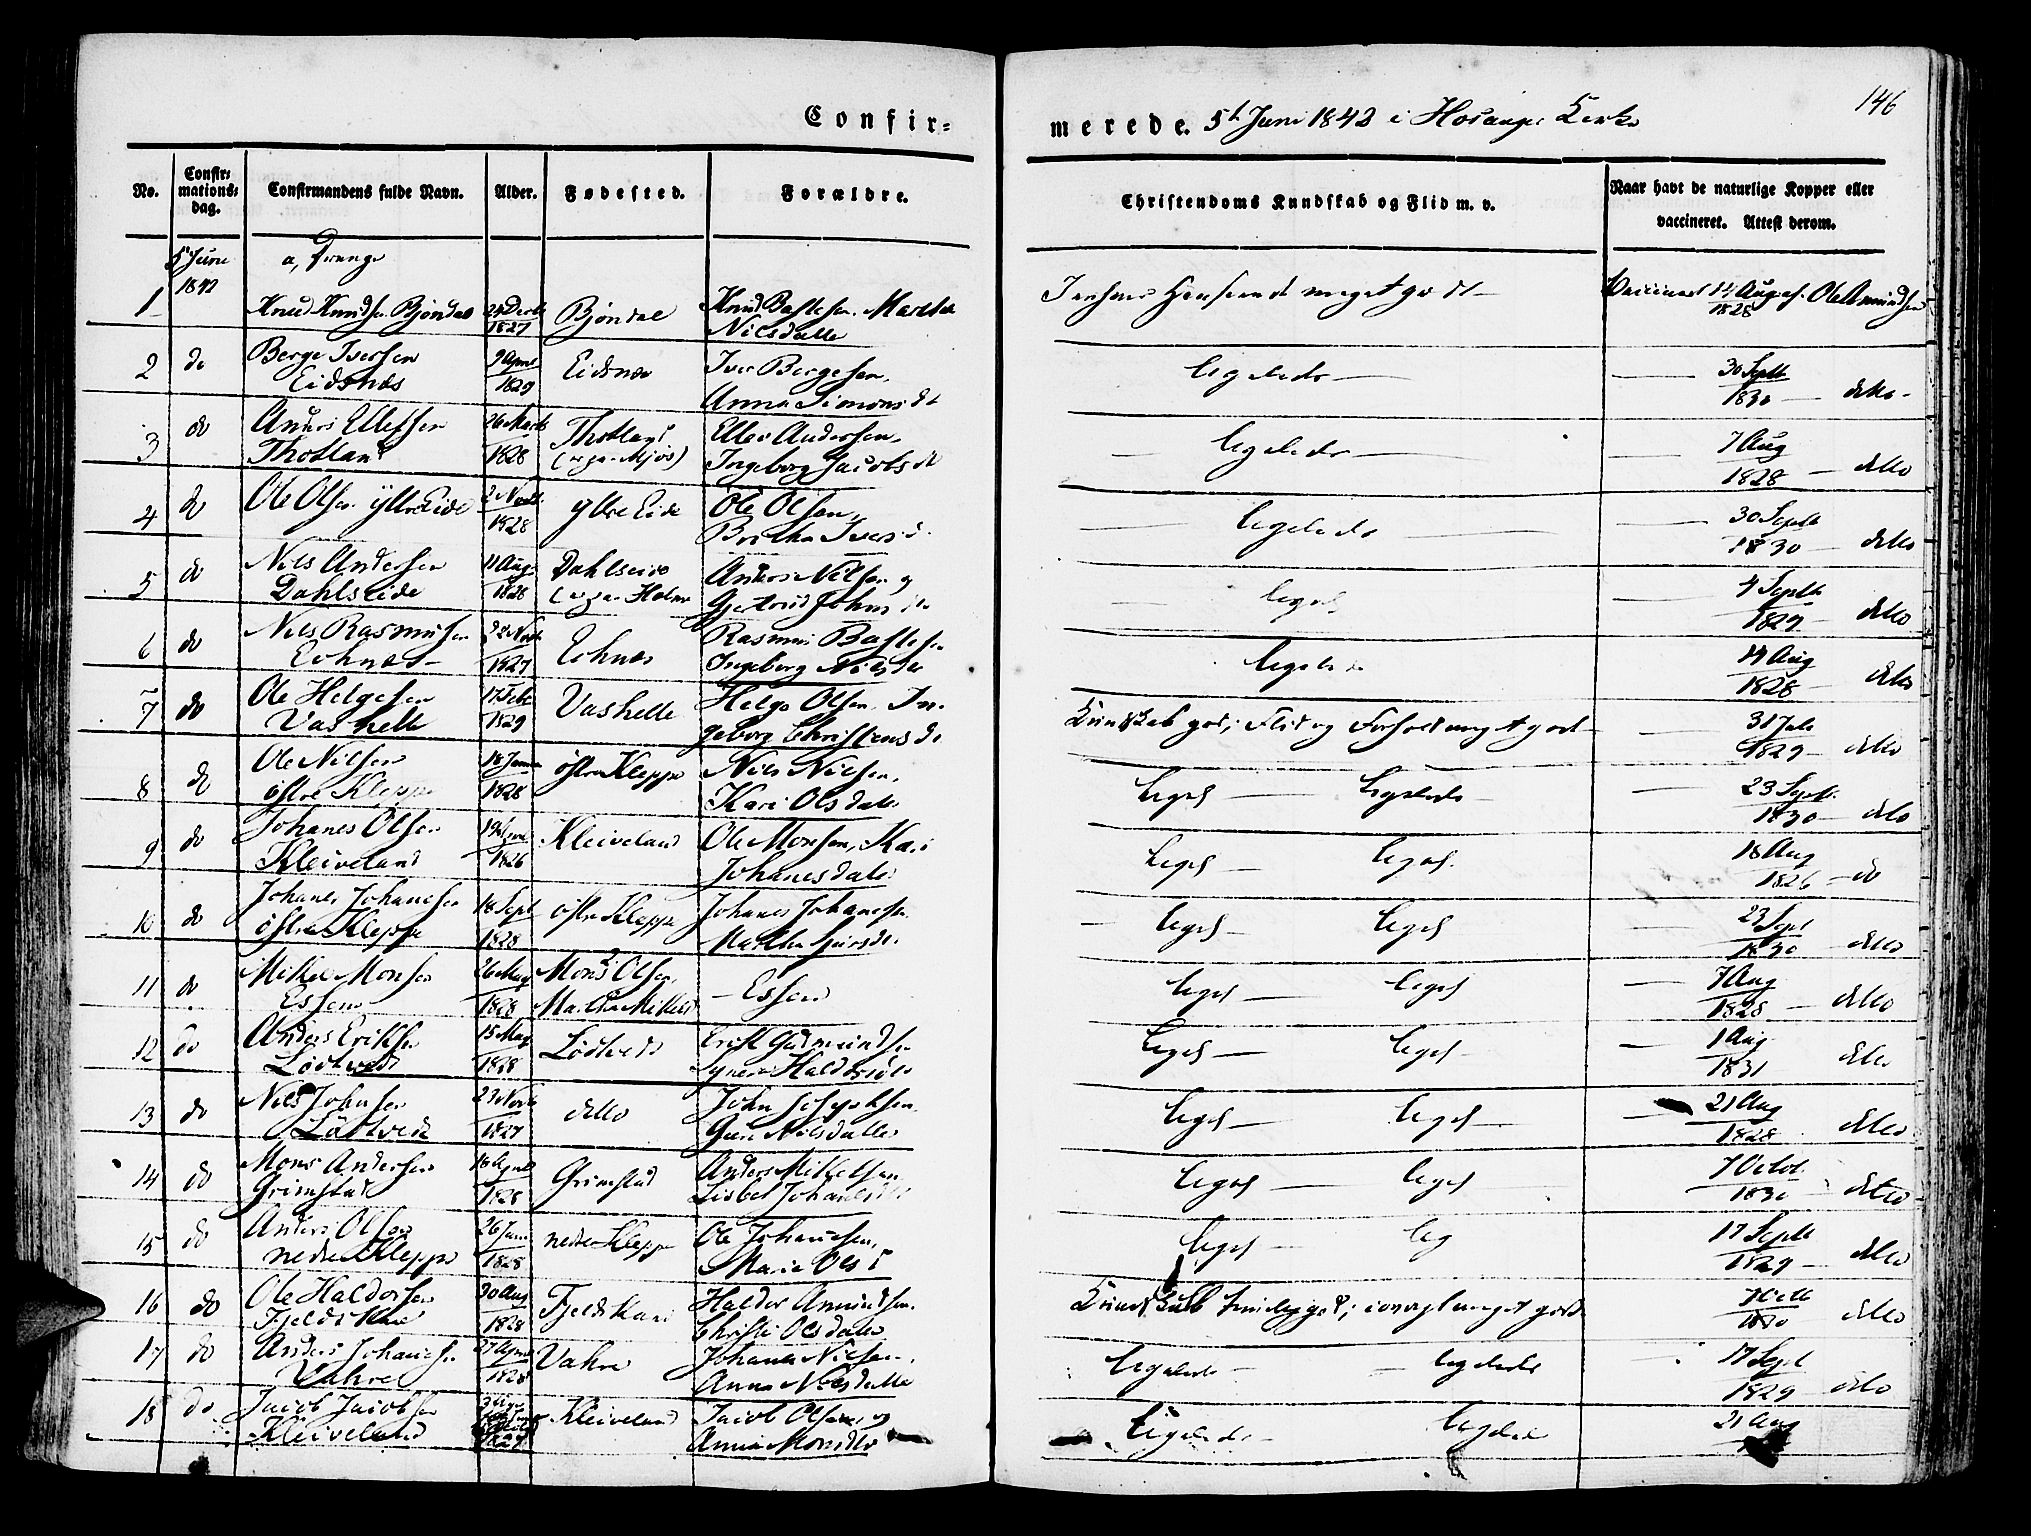 146
Confir=
merede. 5t Juni 1842 i Hosanger Kirke
No.
Confir=
mations=
dag.
Confirmandens fulde Navn.
Alder.
Fødested.
Forældre.
Christendoms Kundskab og Flid m. v.
Naar havt de naturlige Kopper eller
vaccineret. Attest derom.
5 Juni
1842
a, Drenge
1 Knud Knudsen Bjöndal 1827 Bjöndal Knud Nilsdatter meget godt Vaccineret 14 Aug 1828 af Ole Amundsen
2 do Berge Iversen
Eidsnæs 9 April 1829 Eidsnæs Iver Bergesen,
Anna Simonsd ligeledes 30 Septb 1830 ditto
3 do Anders Ellefsen
Thotland 26 Marts 1828 Thotland Ellev Andersen,
Ingeborg Jacobsd ligeledes 7 Aug 1828 ditto
4 do Ole Olsen yttre Eide 1828 yttre Eide Ole Olsen,
Britha Iversd ligeledes 30 Septb 1830 ditto
5 do Nils Andersen
Dahlseide 11 Aug 1828 Dahlseide Anders Nilsen og
Gjertrud Johnsd ligel 4 Septb 1829 ditto
6 do Nils Rasmusen
1827 Rasmus
Ingeborg Nilsd ligeledes 14 Aug 1828 ditto
7 do Ole Helgesen
Vashelle 17 Feb 1829 Vashelle Helge Olsen, In-
geborg Christensd Kundskab god; Flid og Forhold meget god 31 Juli 1829 ditto
8 do Ole Nilsen
östre Kleppe 18 Janu 1828 östre Kleppe Nils Nilsen,
Kari Olsdatter ligel ligeledes 23 Septb 1830 ditto
9 do Johanes Olsen
Kleiveland 1826 Kleiveland Ole Monsen, Kari
Johanesdatter ligel ligel 18 Aug 1826 do
10 do Johanes Johanesen
östre Kleppe 18 Sept 1828 östre Kleppe Johanes Johanesen
Martha ligel ligel 23 Sept 1830 ditto
11 do Mikel Monsen
Essem 26 May 1828 Mons Olsen,
Martha Mikelsd Essem ligel ligel 7 Aug 1828 ditto
12 do Anders Eriksen
Lödtvedt 15 May 1828 Lödtvedt Erik Gudmundsen
Haldorsd ligel ligel 1 Aug 1831 ditto
13 do Nils Johnsen
Lödtvedt 23 Novb 1827 ditto John Josephsen
Guri Nilsdatter ligel ligel 21 Aug 1828 ditto
14 do Mons Andersen
Grimstad 18 April 1828 Grimstad Anders Mikelsen
Lisbet Johanesd ligel ligel 7 Octob. 1830 ditto
15 do Anders Olsen
nedre Kleppe 26 Janu 1828 nedre Kleppe Ole Johanesen,
Maria Olsd ligel lig 17 Septb 1829 ditto
16 do Ole Haldorsen
Fjeldskaar 30 Aug 1828 Fjeldskaar Haldor Amundsen.
Christi Olsdatter Kundskab temmelig god; iövrigt meget god 1830 ditto
17 do Anders Johanesen
Vahre 27 April 1828 Vahre Johanes Nilsen,
Anna Nilsdatter ligeledes ligeledes 17 Sept 1829 ditto
18 do Jacob Jacobsen
Kleiveland 1827 Kleiveland Jacob Olsen og
Anna Monsdtr ligeledes ligeledes 21 Aug